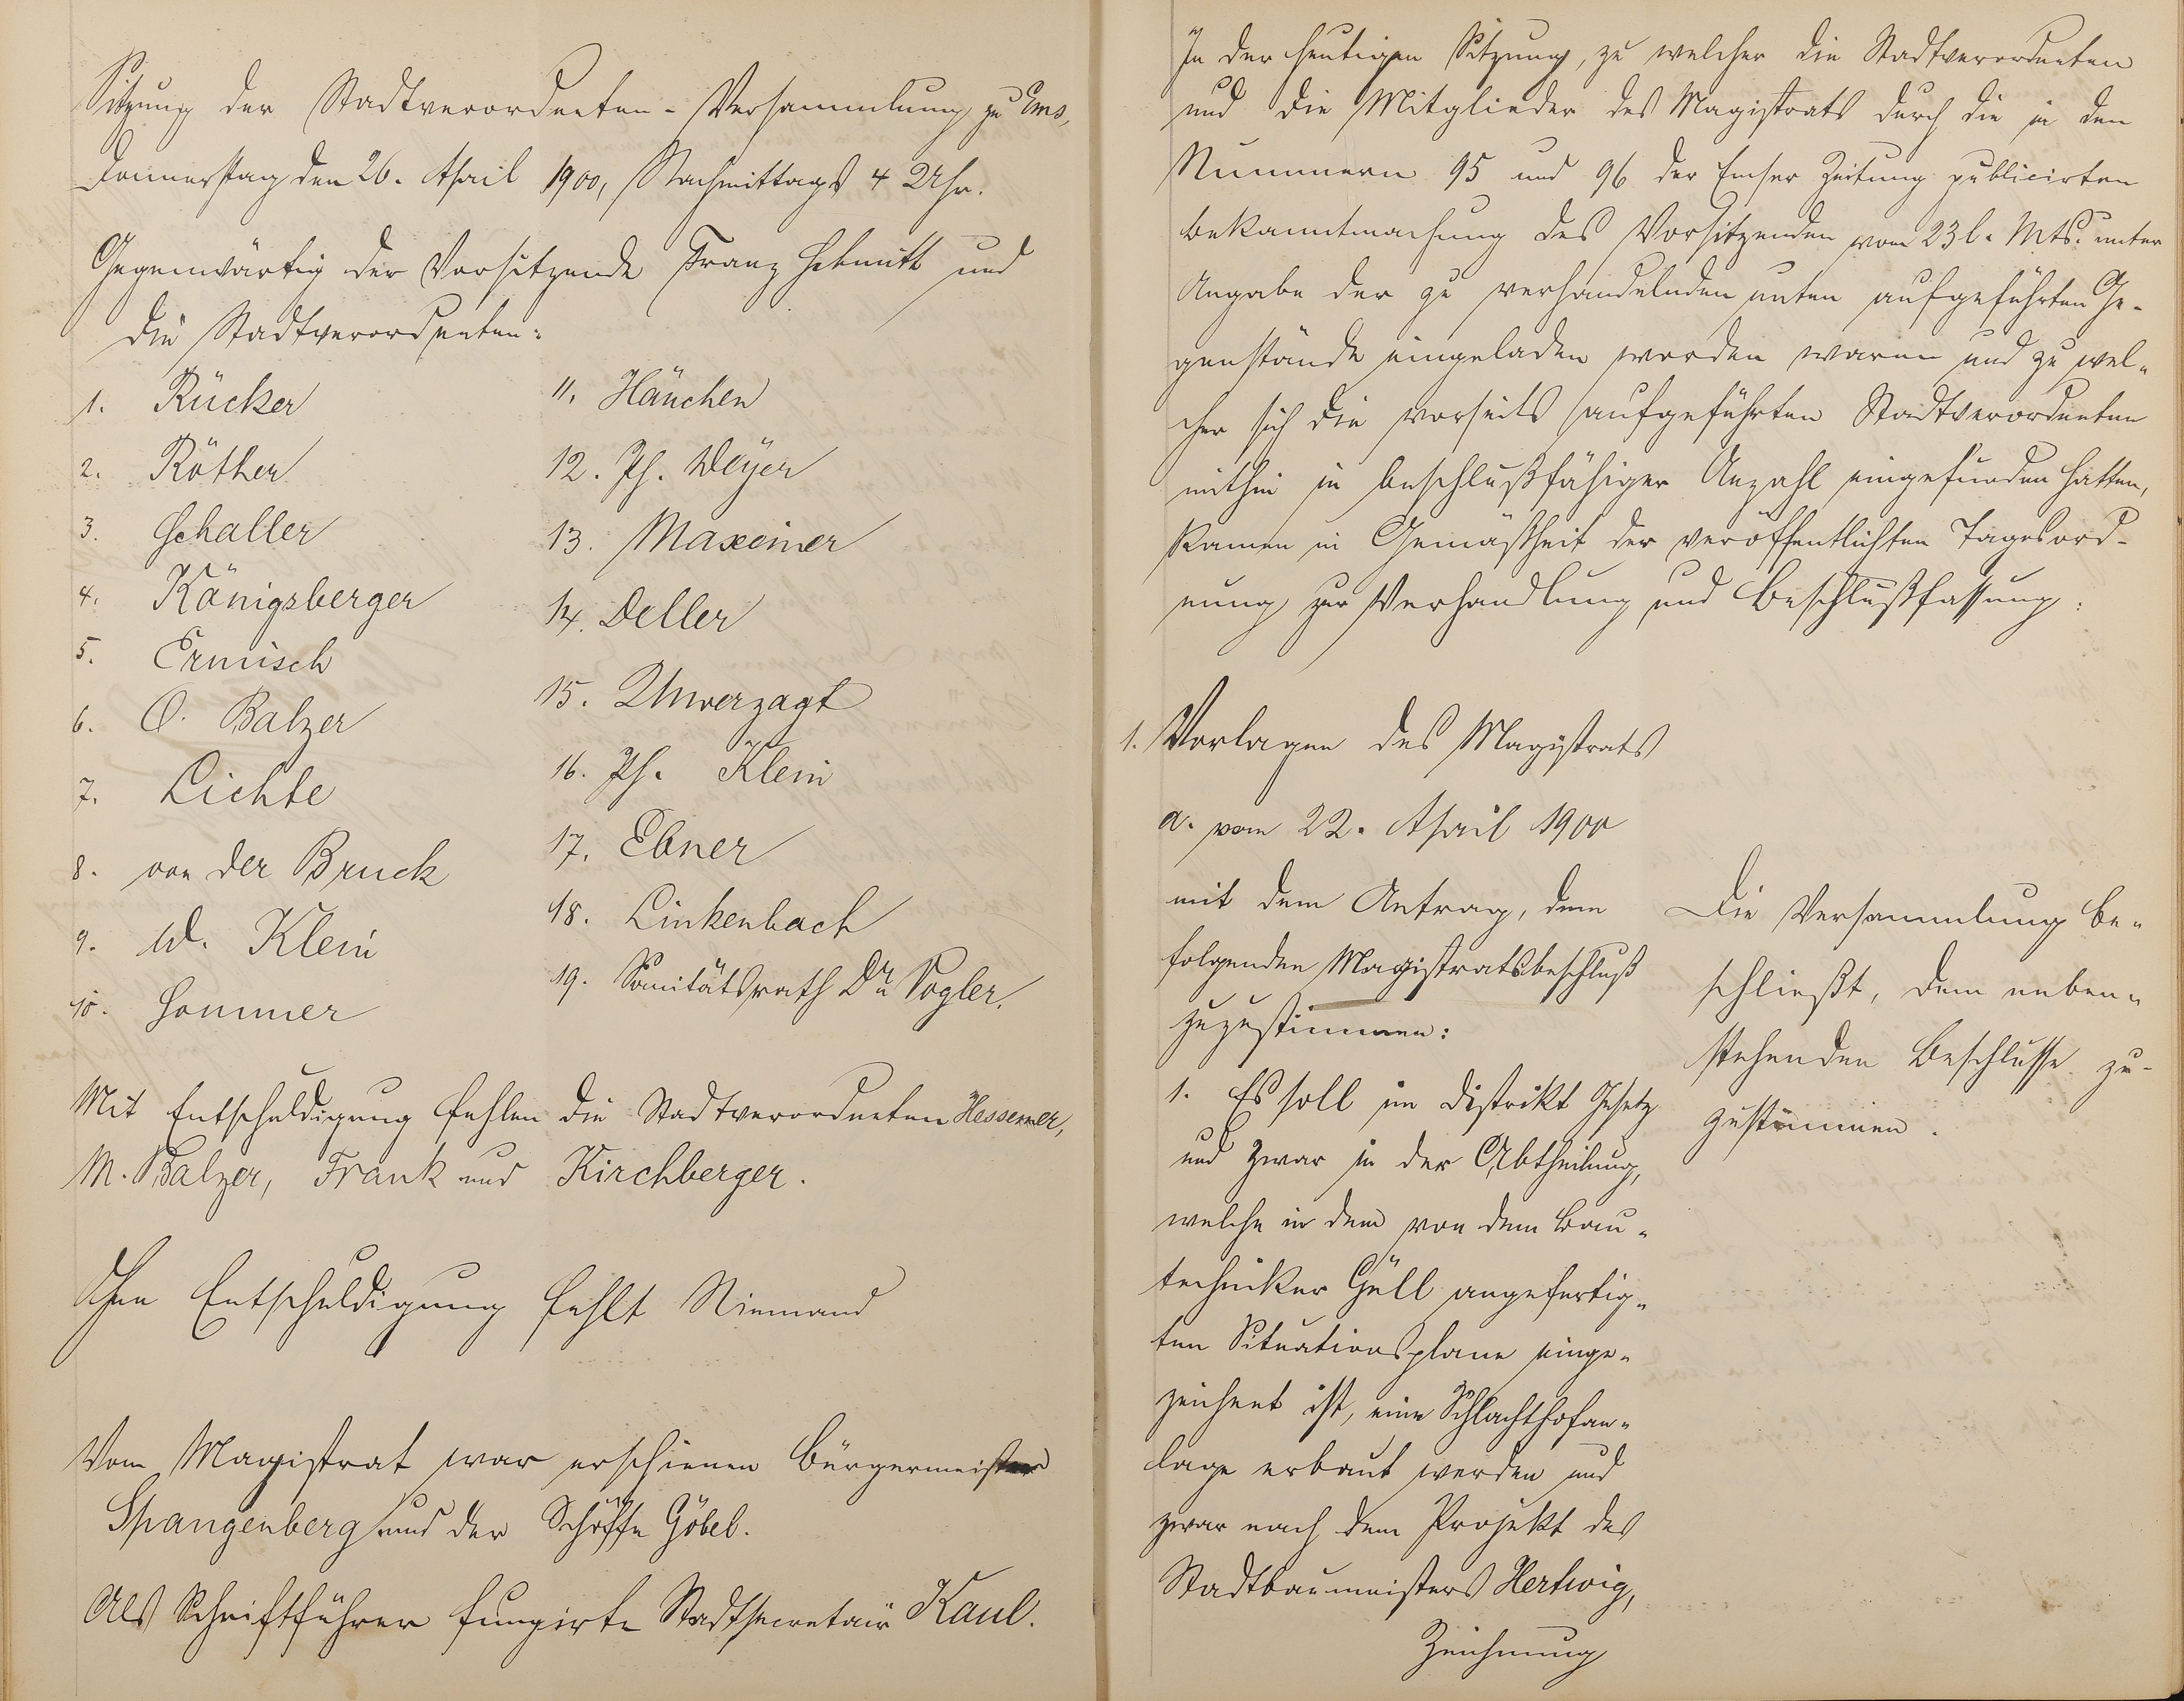 Sitzung der Stadtverordneten-Versammlung zu Ems,
Donnerstag den 26. April 1900, Nachmittags 4 Uhr.
Gegenwärtig der Vorsitzende Franz Schmitt und
die Stadtverordneten:
1. Rücker
2. Röther
3. Schaller
4. Königsberger
5. Ermisch
6. O. Balzer
7. Lichte
8. von der Bruck
9. W. Klein
10. Sommer
11. Häuchen
12. Ph. Weyer
13. Maxeiner
14. Deller
15. Unverzagt
16. Ph. Klein
17. Ebner
18. Linkenbach
19. Sanitätsrath Dr. Vogler.
Mit Entschuldigung fehlen die Stadtverordneten Hessemer,
M. Balzer, Frank und Kirchberger.
Ohne Entschuldigung fehlt Niemand
Vom Magistrat war erschienen Bürgermeister
Spangenberg und der Schöffe Göbel.
Als Schriftführer fungirte Stadtsecretair Kaul.
In der heutigen Sitzung, zu welcher die Stadtverordneten
und die Mitglieder des Magistrats durch die in den
Nummern 95 und 96 der Emser Zeitung publicirten
Bekanntmachung des Vorsitzenden vom 23 l. Mts. unter
Angabe der zu verhandelnden unten aufgeführten Ge-
genstände eingeladen worden waren und zu wel-
cher sich die vorseits aufgeführten Stadtverordneten
mithin in beschlußfähiger Anzahl eingefunden hatten,
kamen in Gemäßheit der veröffentlichten Tagesord-
nung zur Verhandlung und Beschlußfassung:
1. Vorlagen des Magistrats
a. vom 22. April 1900
mit dem Antrag, dem
folgenden Magistratsbeschluß
zuzustimmen:
1. Es soll im Distrikt Gesetz
und zwar in der Abtheilung,
welche in dem von dem Bau-
techniker Güll angefertig-
ten Situationsplane einge-
zeichnet ist, eine Schlachthofan-
lage erbaut werden und
zwar nach dem Projekt des
Stadtbaumeisters Hertwig,
Zeichnung
Die Versammlung be-
schließt, dem neben-
stehenden Beschlusse zu-
zustimmen.